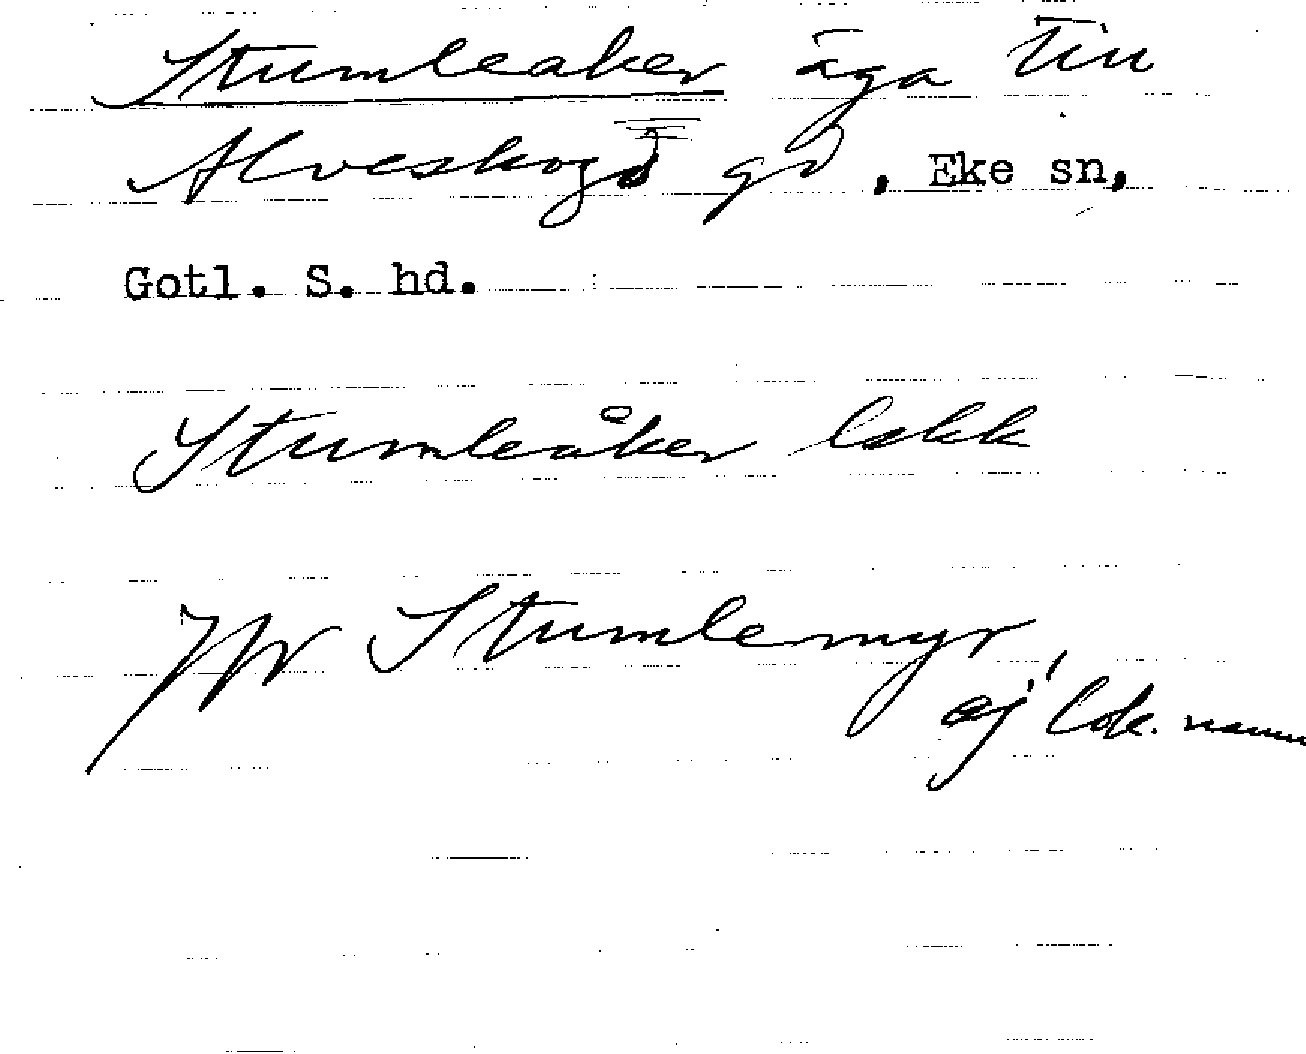 Stumleaker äga till
Alveskogs gd, Eke sn,
Gotl. S. hd.
Stumleåker
Jfr Stumlemyr,
ej lok. namn